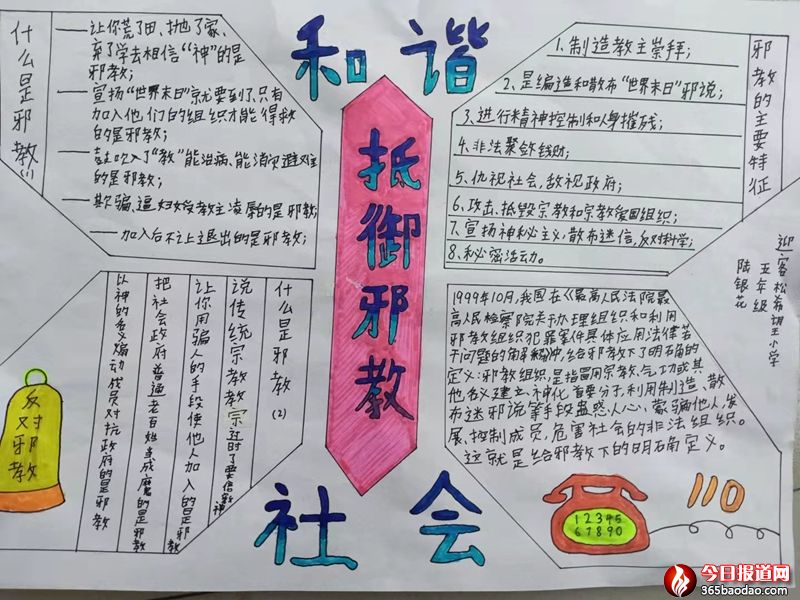 和谐
抵御邪教
社会
什么是邪教(1)
——让你荒了田、抛了家、
弃了学去相信“神”的是
邪教;
——宣扬“世界末日”就要到了,只有
加入他们的组织才能得救
的是邪教;
——鼓吹入了“教”能治病、能消灾避难
的是邪教;
——欺骗、逼妇女受教主凌辱的是邪教;
——加入后不让退出的是邪教;
邪教的主要特征
1、制造教主崇拜;
2、是编造和散布“世界末日”邪说;
3、进行精神控制和人身摧残;
4、非法聚敛钱财;
5、仇视社会,敌视政府;
6、攻击、抵毁宗教和宗教爱国组织;
7、宣扬神秘主义,散布迷信,反对科学;
8、秘密活动。
迎客松希望小学
五年级
陆银花
什么是邪教(2)
说传统宗教教宗过时了要信新神
让你用骗人的手段使他人加入的是邪教
把社会政府普通老百姓当成魔的是邪教
以神的名义煽动成员对抗政府的是邪教
反对邪教
1999年10月,我国在《最高人民法院最
高人民检察院关于办理组织和利用
邪教组织犯罪案件具体应用法律若
干问题的解释》中,给邪教下了明确的
定义:邪教组织,是指冒用宗教、气功或其
他名义建立、神化首要分子,利用制造、散
布迷邪说等手段蛊惑人心、蒙骗他人,发
展、控制成员,危害社会的非法组织。
这就是给邪教下的明确定义。
110
12345
67890
今日报道网
365baodao.com